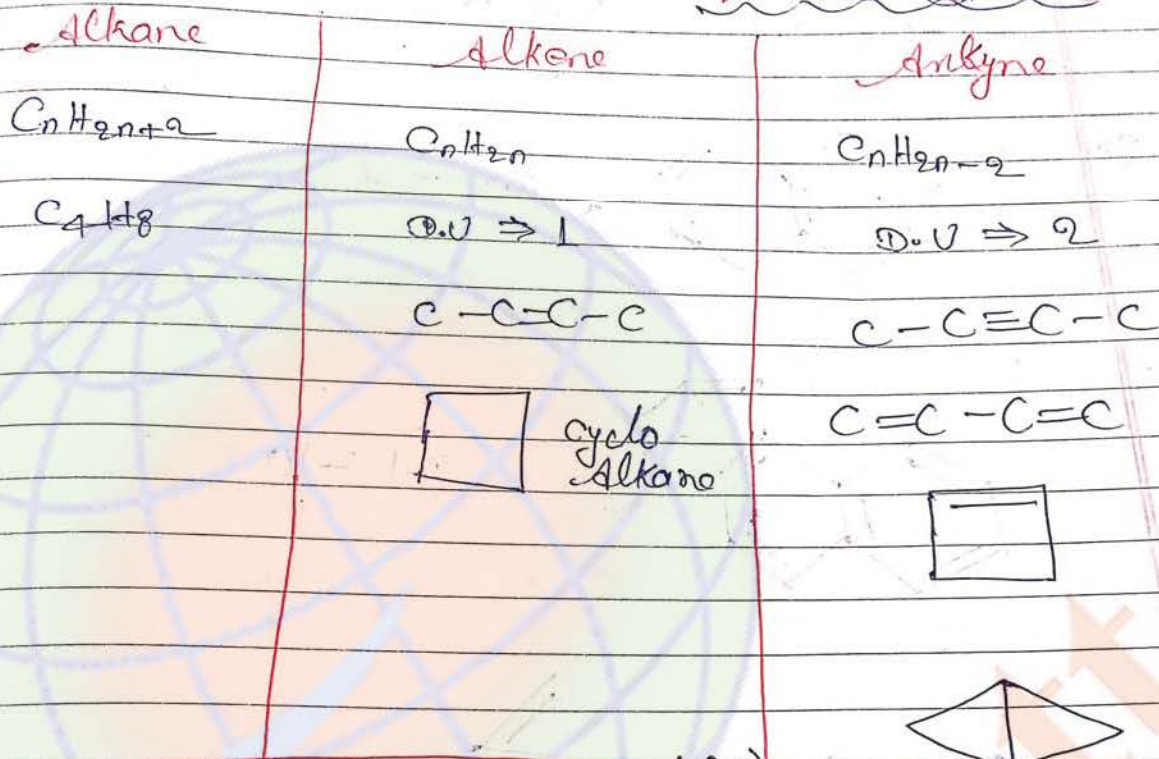 Alkane Alkene Ankyne
CnH2n+2 CnH2n CnH2n-2
C4H8 D.U ⇒ 1 D.U ⇒ 2
C-C=C-C C-C≡C-C
cyclo C=C-C=C
Alkane